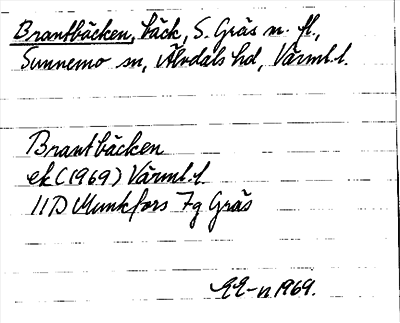 Brantbäcken, bäck, S. Gräs n. fl.,
Sunnemo sn, Älvdals hd, Värml. l.
Brantbäcken
ek (1969) Värml. l.
11D Munkfors 7g Gräs
1969.